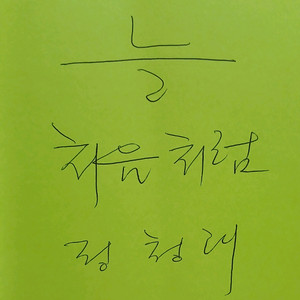 늘
처음처럼
정청래